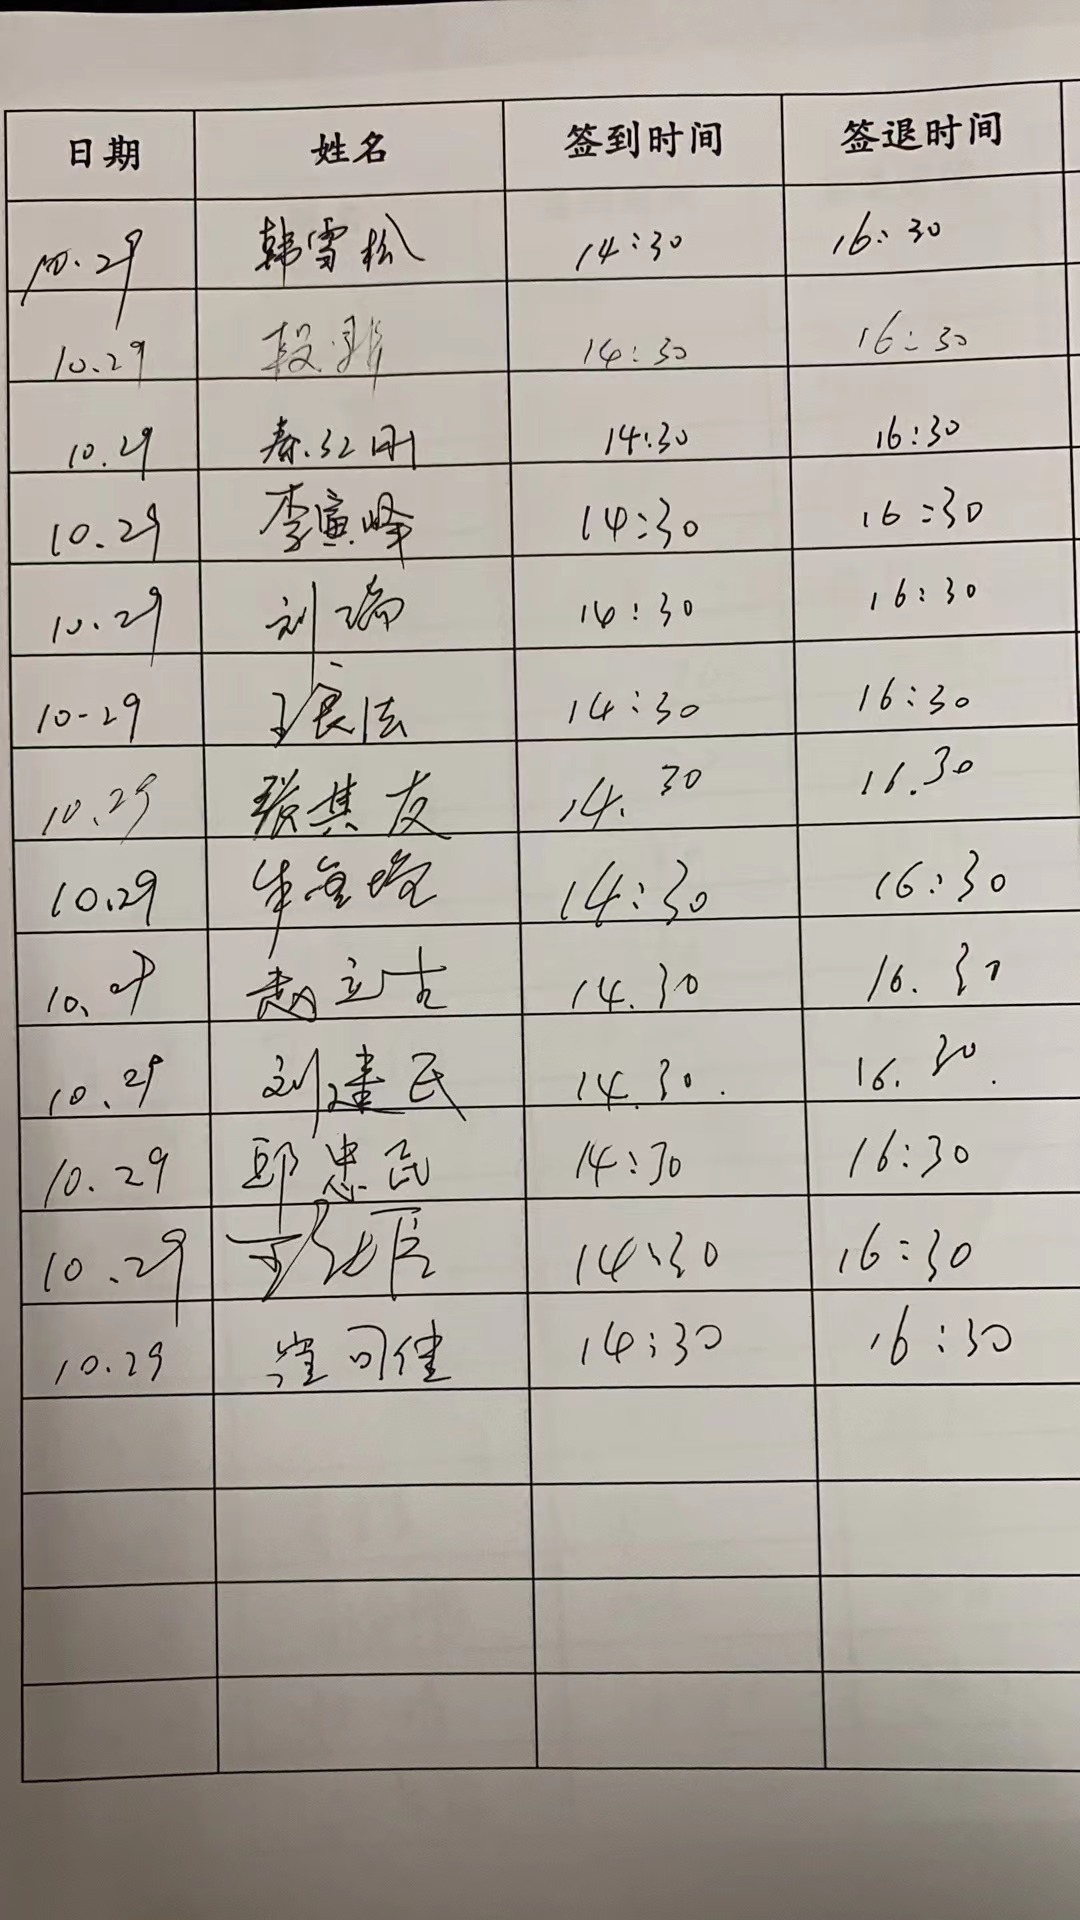 日期 姓名 签到时间 签退时间
10.29 韩雪松 14:30 16:30
10.29 段 14:30 16:30
10.29 秦江刚 14:30 16:30
10.29 李寅峰 14:30 16:30
10.29 刘瑞 14:30 16:30
10-29 王良法 14:30 16:30
10.29 张其友 14.30 16.30
10.29 14:30 16:30
10.29 赵立古 14.30 16.30
10.29 刘建民 14.30. 16.30.
10.29 邱忠民 14:30 16:30
10.29 王 14:30 16:30
10.29 崔司佳 14:30 16:30